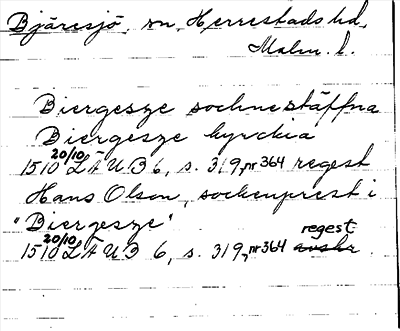 Bjäresjö sn, Herrestads hd,
Malm. l.
Biergesze sochnestäffna
Biergesze kyrckia
1510 20/10 LÄUB 6, s. 319, nr 364 regest
Hans Olson, sockenprest i
"Biergesze"
1510 20/10 LÄUB 6, s. 319, nr 364 avskr regest.